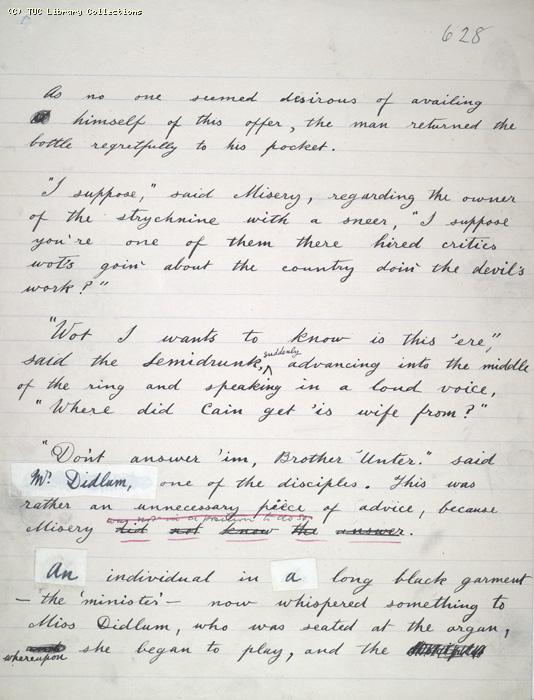 (C) TUC Library Collections
628
As no one seemed desirous of availing
himself of this offer, the man returned the
bottle regretfully to his pocket.
"I suppose," said Misery, regarding the owner
of the strychnine with a sneer, "I suppose
you're one of them there hired critics
wot's goin' about the country doin' the devil's
work?"
"Wot I wants to know is this 'ere,"
said the Semidrunk, suddenly advancing into the middle
of the ring and speaking in a loud voice,
"Where did Cain get 'is wife from?"
"Don't answer 'im, Brother 'Unter." said
Mr. Didlum, one of the disciples. This was
rather an unnecessary piece of advice, because
was not in a position to do so
Misery did not know the answer.
An individual in a long black garment
— the 'minister' — now whispered something to
Miss Didlum, who was seated at the organ,
whereupon she began to play, and the